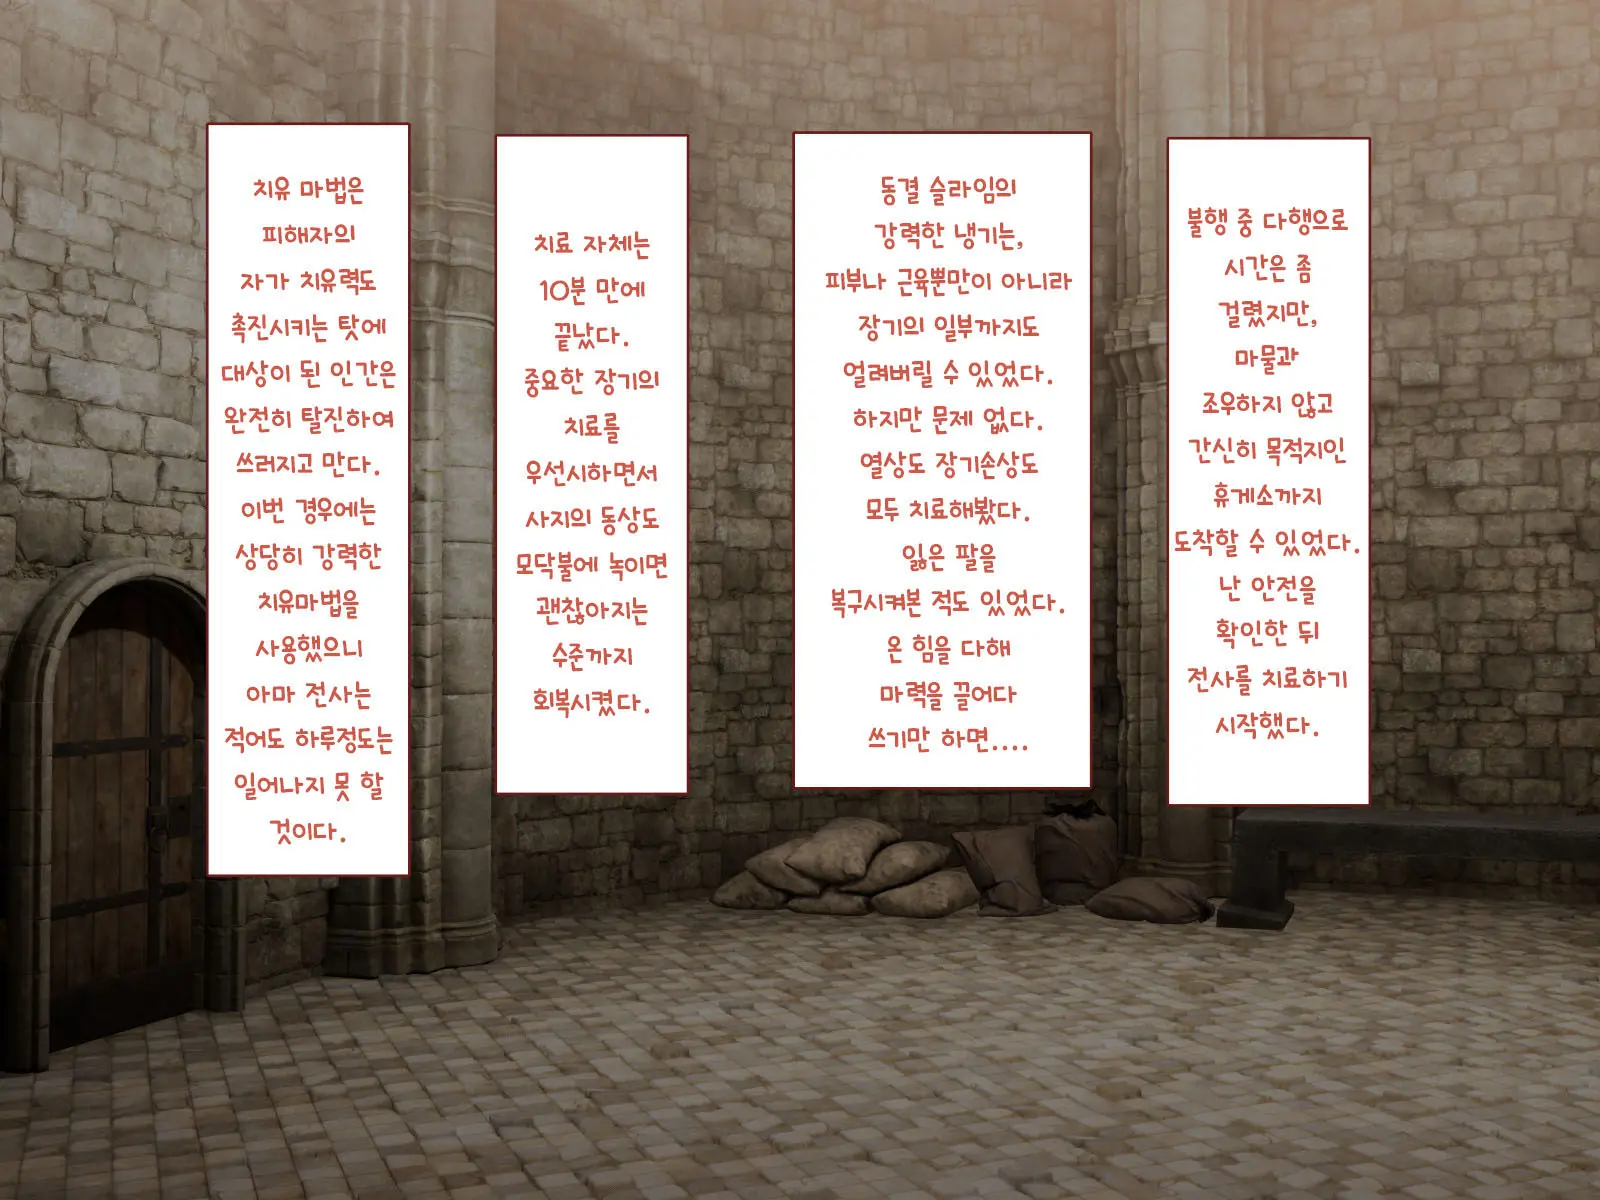 불행 중 다행으로
시간은 좀
걸렸지만,
마물과
조우하지 않고
간신히 목적지인
휴게소까지
도착할 수 있었다.
난 안전을
확인한 뒤
전사를 치료하기
시작했다.
동결 슬라임의
강력한 냉기는,
피부나 근육뿐만이 아니라
장기의 일부까지도
얼려버릴 수 있었다.
하지만 문제 없다.
열상도 장기손상도
모두 치료해봤다.
잃은 팔을
복구시켜본 적도 있었다.
온 힘을 다해
마력을 끌어다
쓰기만 하면....
치료 자체는
10분 만에
끝났다.
중요한 장기의
치료를
우선시하면서
사지의 동상도
모닥불에 녹이면
괜찮아지는
수준까지
회복시켰다.
치유 마법은
피해자의
자가 치유력도
촉진시키는 탓에
대상이 된 인간은
완전히 탈진하여
쓰러지고 만다.
이번 경우에는
상당히 강력한
치유마법을
사용했으니
아마 전사는
적어도 하루정도는
일어나지 못 할
것이다.